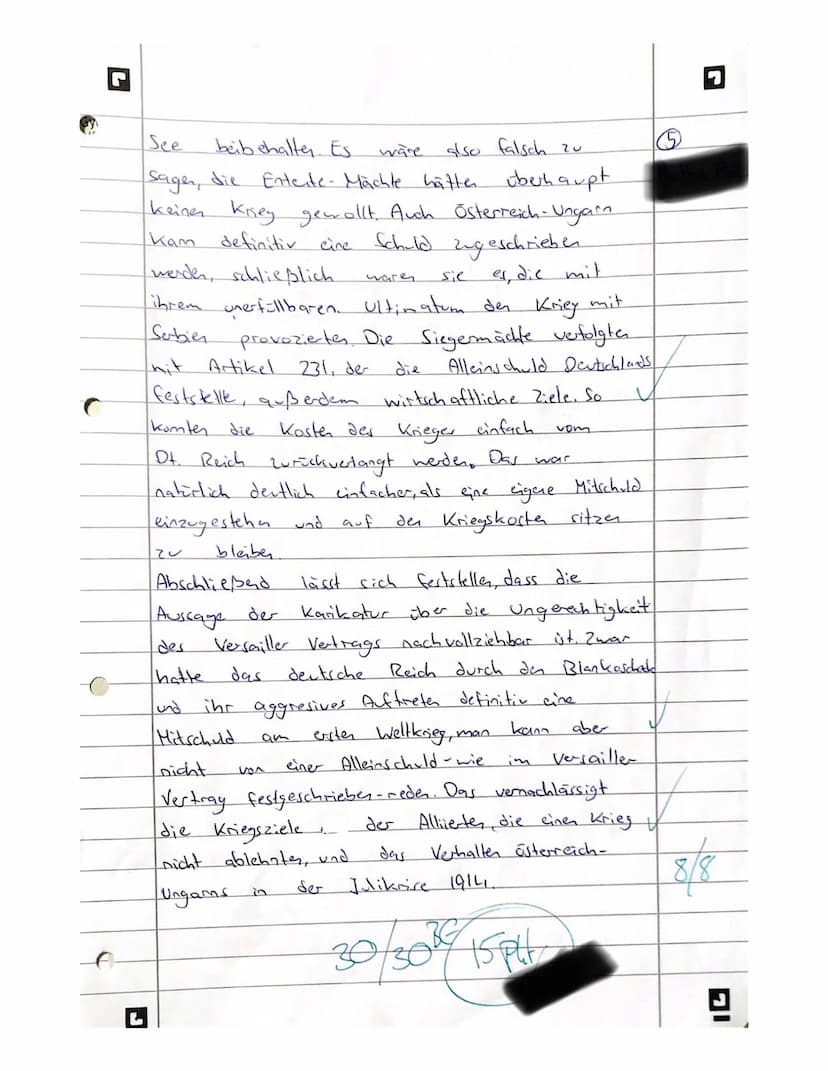 See beibehalten. Es wäre also falsch zu
⑤
sagen, die Entente-Mächte hätten überhaupt
keinen Krieg gewollt. Auch Österreich-Ungarn
kann definitiv eine Schuld zugeschrieben
werden, schließlich waren sie es, die mit
ihrem unerfüllbaren Ultimatum den Krieg mit
Serbien provozierten. Die Siegermächte verfolgten
mit Artikel 231, der die Alleinschuld Deutschlands
feststellte, außerdem wirtschaftliche Ziele. So
konnten die Kosten des Krieges einfach vom
Dt. Reich zurückverlangt werden. Das war
natürlich deutlich einfacher, als eine eigene Mitschuld
einzugestehen und auf den Kriegskosten sitzen
zu bleiben.
Abschließend lässt sich feststellen, dass die
Aussage der Karikatur über die Ungerechtigkeit
des Versailler Vertrags nachvollziehbar ist. Zwar
hatte das deutsche Reich durch den Blankoscheck
und ihr aggresives Auftreten definitiv eine
Mitschuld am ersten Weltkrieg, man kann aber
nicht von einer Alleinschuld - wie im Versailler
Vertrag festgeschrieben - reden. Das vernachlässigt
die Kriegsziele der Alliierten, die einen Krieg
nicht ablehnten, und das Verhalten Österreich-
Ungarns in der Julikrise 1914.
8/8
30/30 BE 15 Pkt